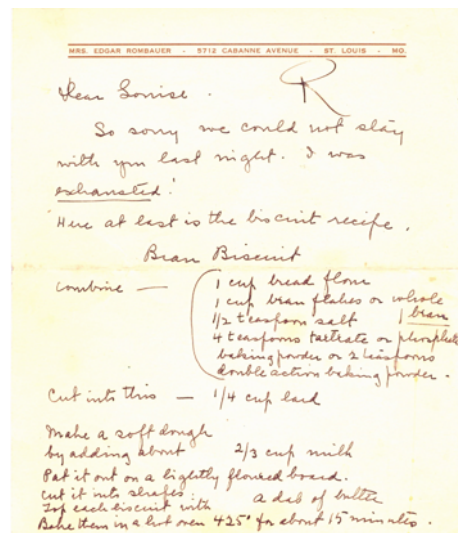 MRS. EDGAR ROMBAUER - 5712 CABANNE AVENUE - ST. LOUIS - MO.
R
Dear Louise.
So sorry we could not stay
with you last night. I was
exhausted!
Here at last is the biscuit recipe.
Bran Biscuit
Combine — 1 cup bread flour
1 cup bran flakes or whole bran
1/2 teaspoon salt
4 teaspoons tartrate or phosphate
baking powder or 2 teaspoons
double action baking powder.
Cut into this — 1/4 cup lard
Make a soft dough
by adding about 2/3 cup milk
Pat it out on a lightly floured board.
Cut it into shapes.
Top each biscuit with a dab of butter
Bake them in a hot oven 425° for about 15 minutes.